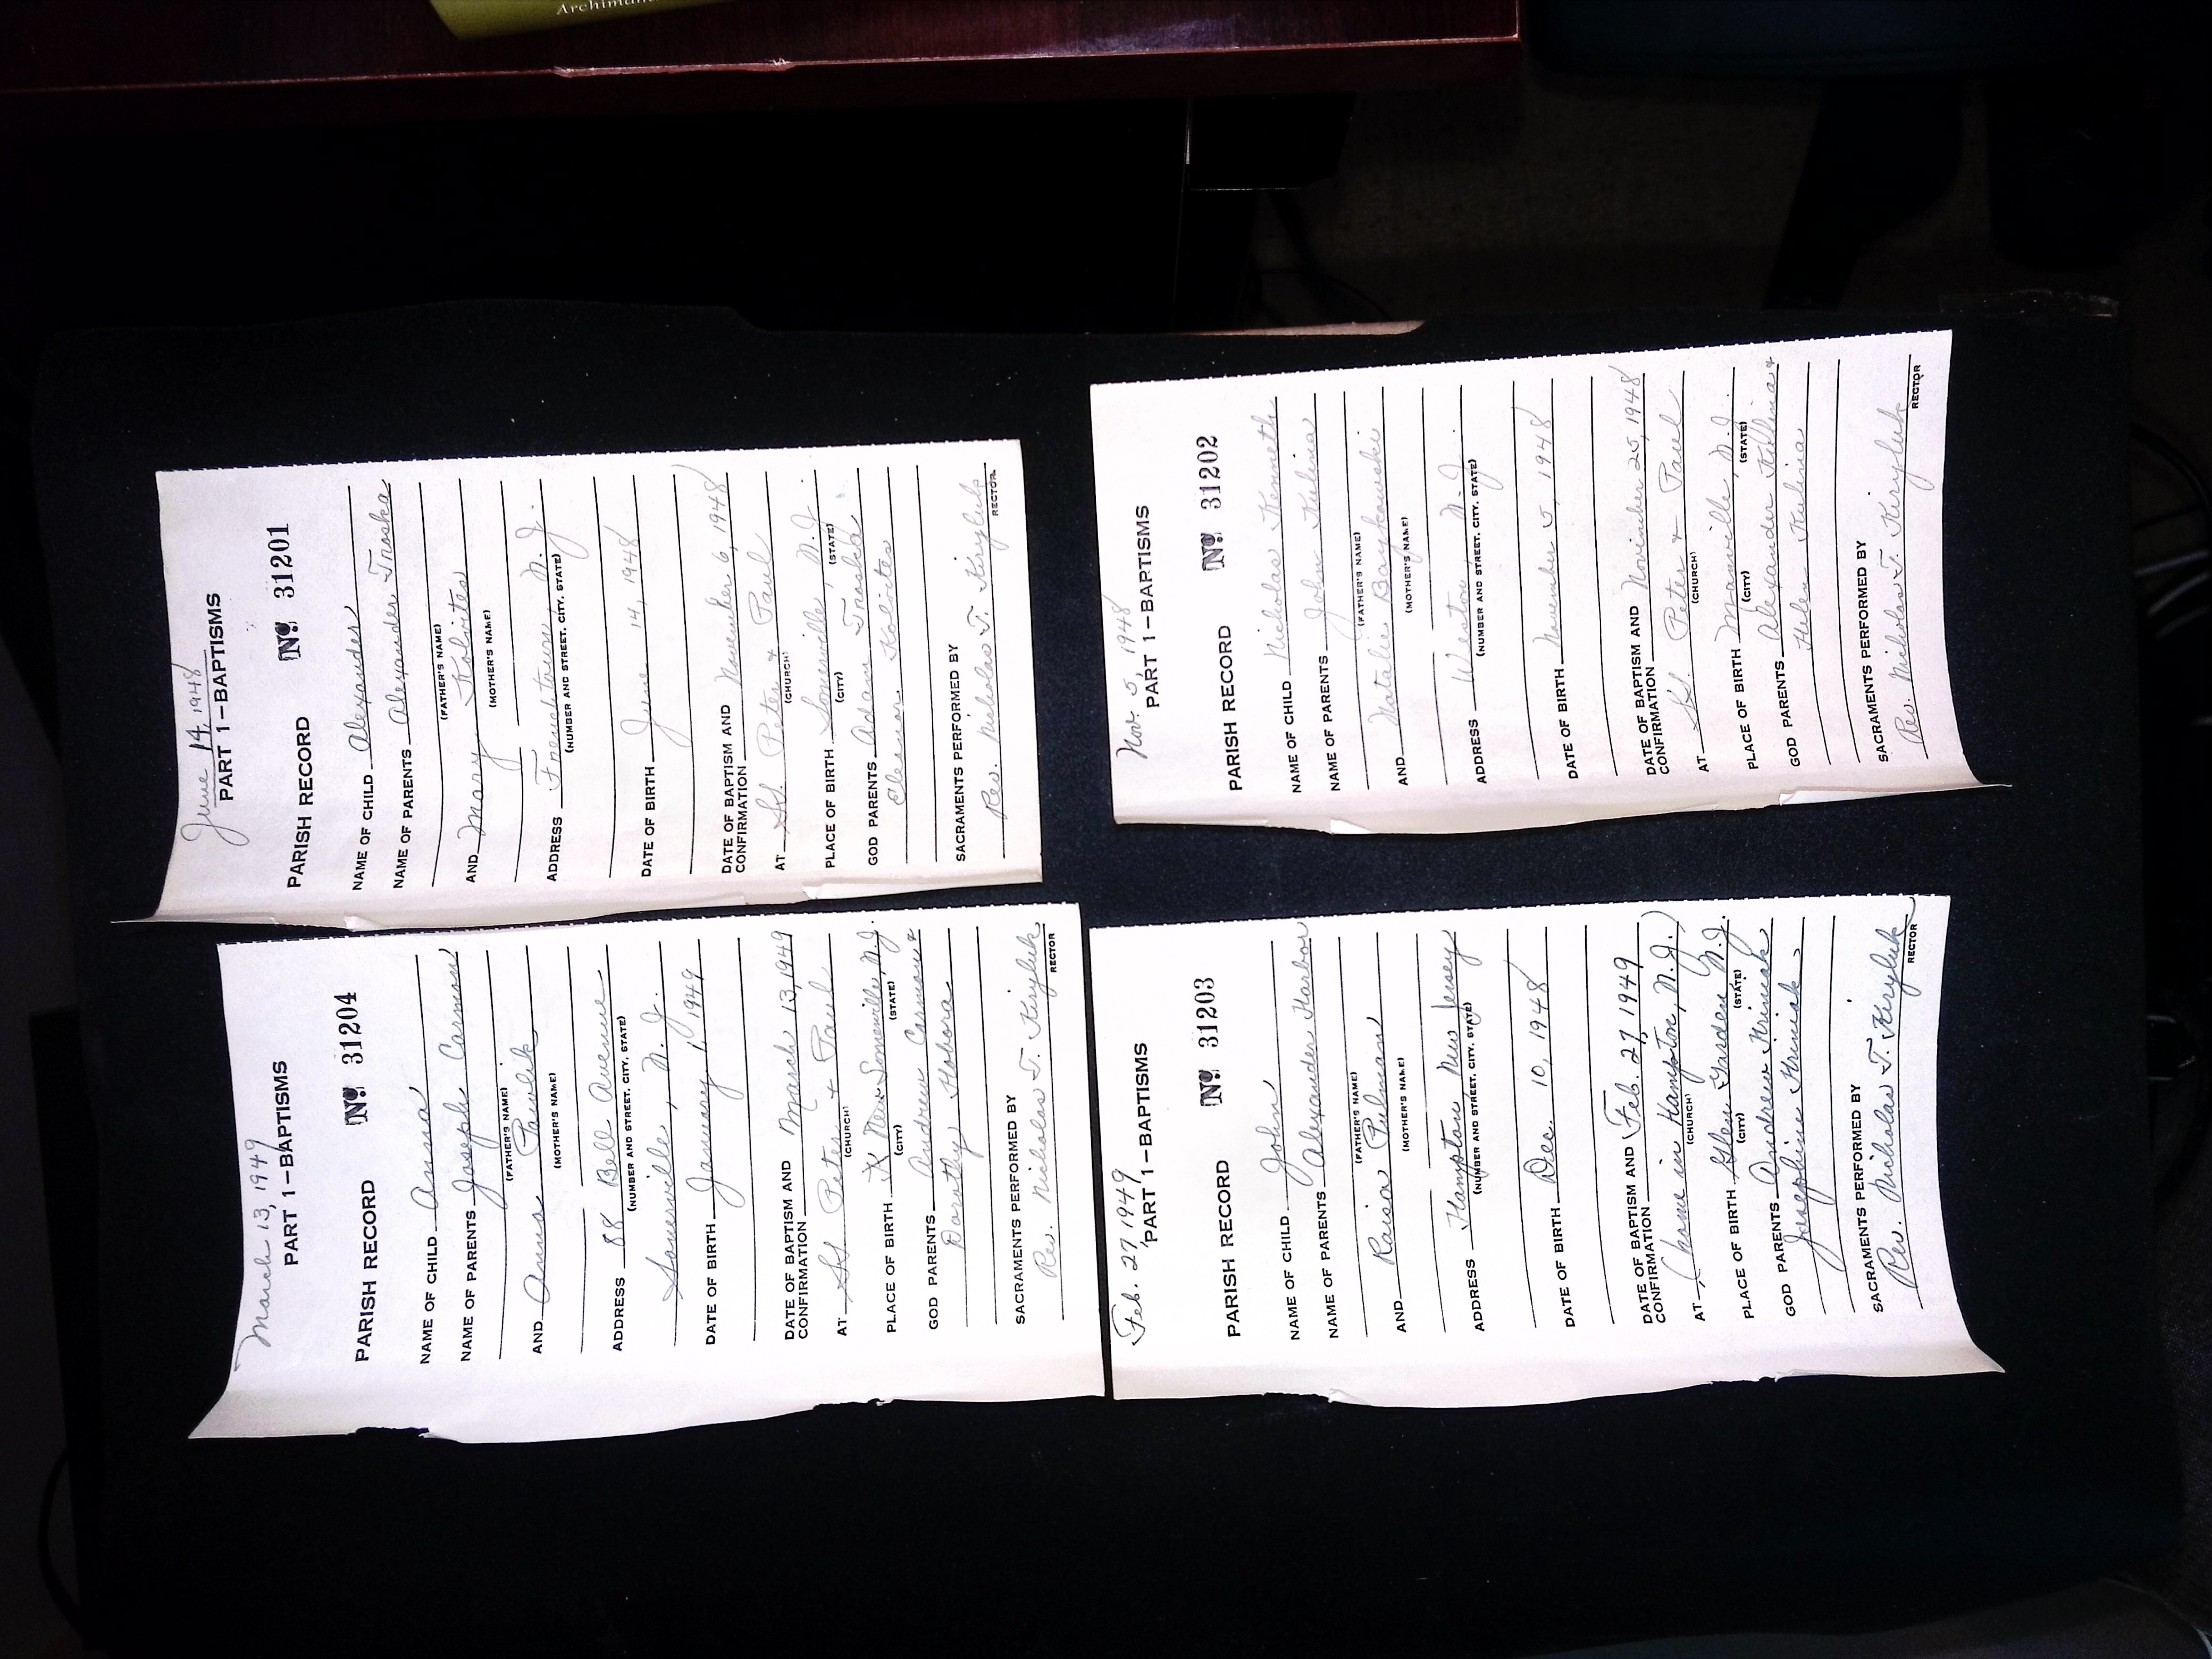 March 13, 1949
PART 1—BAPTISMS
PARISH RECORD No. 31204
NAME OF CHILD Anna
NAME OF PARENTS Joseph Carmon
(FATHER'S NAME)
AND Anna Pawlik
(MOTHER'S NAME)
ADDRESS 88 Bell Avenue
(NUMBER AND STREET, CITY, STATE)
Somerville, N. J.
DATE OF BIRTH January 1, 1949
DATE OF BAPTISM AND March 13, 1949
CONFIRMATION
AT SS Peter + Paul
(CHURCH)
PLACE OF BIRTH Somerville, N. J.
(CITY) (STATE)
GOD PARENTS Andrew Carmon &
Dorothy Hobora
SACRAMENTS PERFORMED BY
Rev. Nicholas T. Kiryluk
RECTOR
June 14, 1948
PART 1—BAPTISMS
PARISH RECORD No. 31201
NAME OF CHILD Alexander
NAME OF PARENTS Alexander Troska
(FATHER'S NAME)
AND Mary Kolvites
(MOTHER'S NAME)
ADDRESS Frenchtown, N. J.
(NUMBER AND STREET, CITY, STATE)
DATE OF BIRTH June 14, 1948
DATE OF BAPTISM AND November 6, 1948
CONFIRMATION
AT SS. Peter + Paul
(CHURCH)
PLACE OF BIRTH Somerville, N. J.
(CITY) (STATE)
GOD PARENTS Adam Troska
Eleanor Kolvites
SACRAMENTS PERFORMED BY
Rev. Nicholas T. Kiryluk
RECTOR
Feb. 27, 1949
PART 1—BAPTISMS
PARISH RECORD No. 31203
NAME OF CHILD John
NAME OF PARENTS Alexander Harbor
(FATHER'S NAME)
AND Raisa Pulman
(MOTHER'S NAME)
ADDRESS Hampton, New Jersey
(NUMBER AND STREET, CITY, STATE)
DATE OF BIRTH Dec. 10, 1948
DATE OF BAPTISM AND Feb. 27, 1949
CONFIRMATION
AT (home in Hampton, N. J.)
(CHURCH)
PLACE OF BIRTH Glen Garden, N. J.
(CITY) (STATE)
GOD PARENTS Andrew Hriniak
Josephine Hriniak
SACRAMENTS PERFORMED BY
Rev. Nicholas T. Kiryluk
RECTOR
Nov. 5, 1948
PART 1—BAPTISMS
PARISH RECORD No. 31202
NAME OF CHILD Nicholas Kenneth
NAME OF PARENTS John Kulina
(FATHER'S NAME)
AND Natalie Baykowski
(MOTHER'S NAME)
ADDRESS Weston, N. J.
(NUMBER AND STREET, CITY, STATE)
DATE OF BIRTH November 5, 1948
DATE OF BAPTISM AND November 25, 1948
CONFIRMATION
AT SS. Peter + Paul
(CHURCH)
PLACE OF BIRTH Manville, N. J.
(CITY) (STATE)
GOD PARENTS Alexander Kulina &
Helen Kulina
SACRAMENTS PERFORMED BY
Rev. Nicholas T. Kiryluk
RECTOR